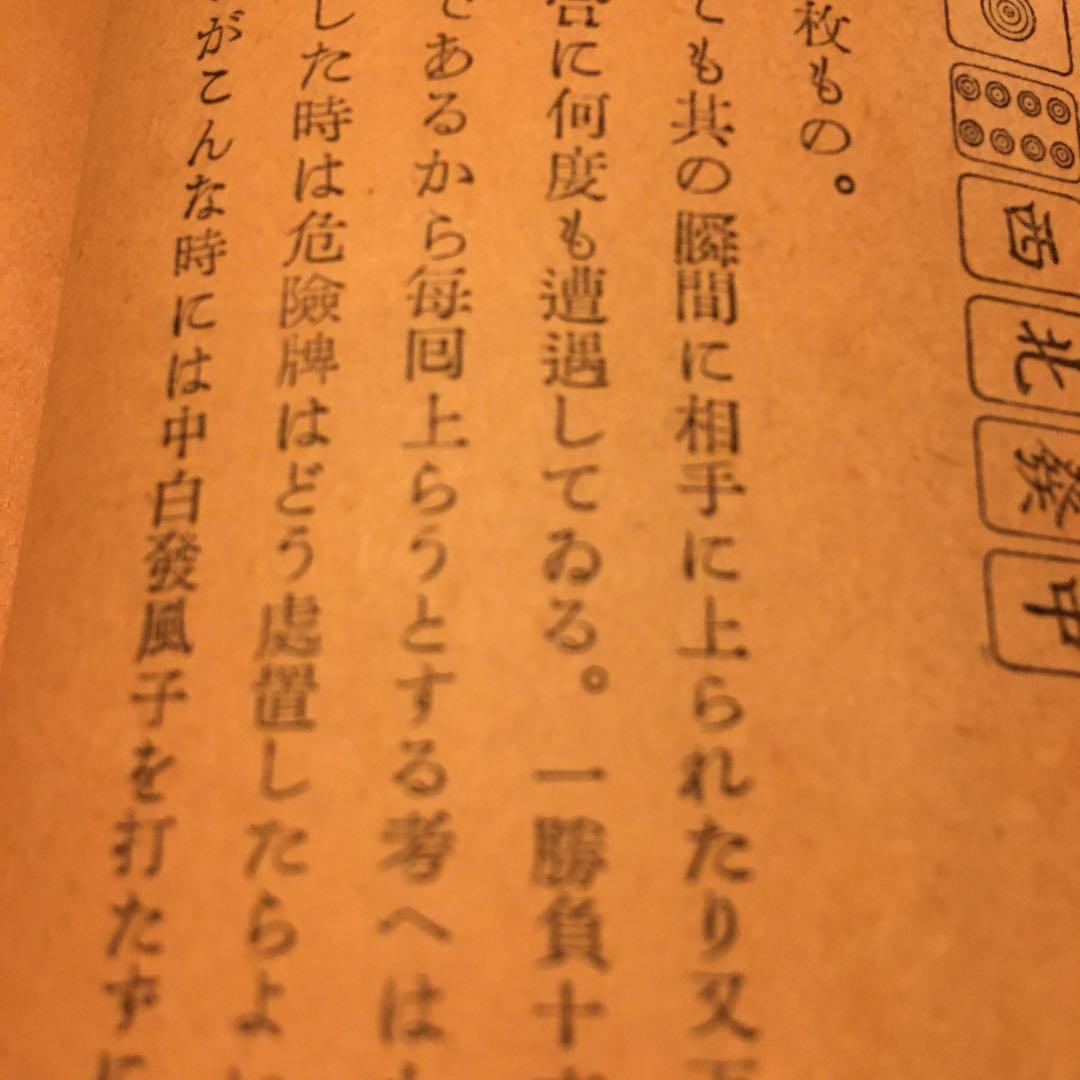 西
北
發
中
枚もの。
ても其の瞬間に相手に上られたり又
合に何度も遭遇してゐる。一勝負十
であるから毎回上らうとする考へは
した時は危險牌はどう處置したらよ
がこんな時には中白發風子を打たずに